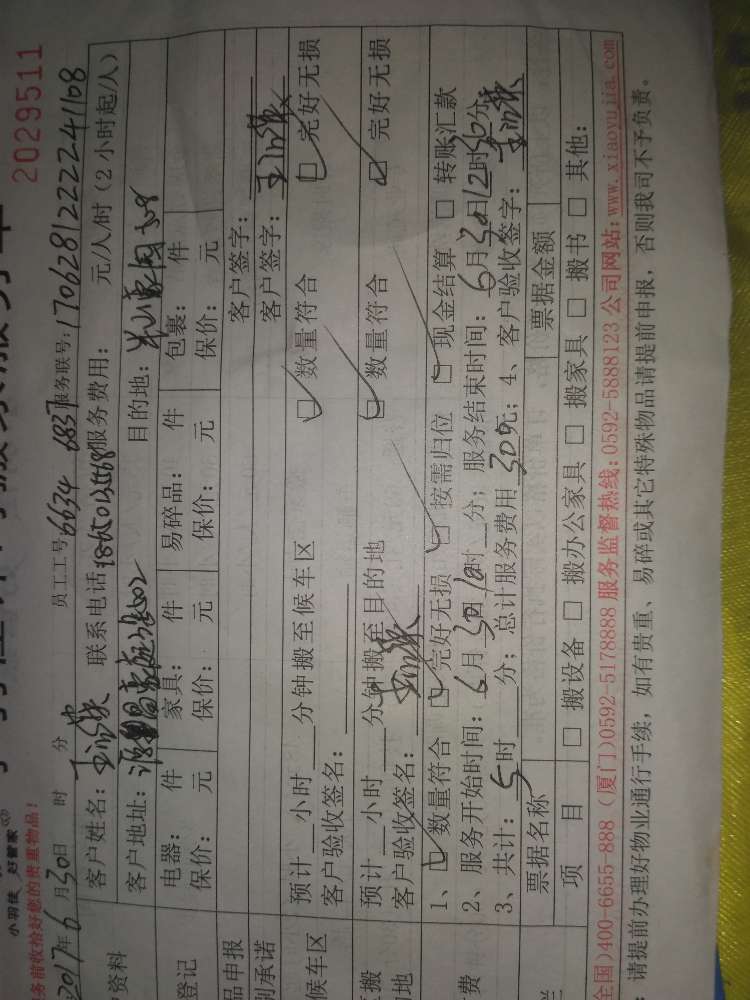 2029511
小羽佳 好管家
务前收拾好您的贵重物品！
2017年6月30日 时 分 员工工号 6634 6837 服务联号：1706281222241108
资料 客户姓名： 联系电话 服务费用： 元/人/时（2小时起/人）
客户地址： 目的地：
登记 电器： 件 家具： 件 易碎品： 件 包裹： 件
保价： 元 保价： 元 保价： 元 保价： 元
品申报 客户签字：
别承诺 客户签字：
候车区 预计 小时 分钟搬至候车区 ☑数量符合 ☑完好无损
客户验收签名：
搬 预计 小时 分钟搬至目的地 ☑数量符合 ☑完好无损
的地 客户验收签名：
费 1、☑数量符合 ☑完好无损 ☑按需归位 ☑现金结算 □转账汇款
2、服务开始时间：6月30日10时 分；服务结束时间：6月30日12时30分
3、共计：5时 分；总计服务费用300元；4、客户验收签字：
票据名称 票据金额
项 目 □搬设备 □搬办公家具 □搬家具 □搬书 □其他：
全国)400-6655-888（厦门)0592-5178888 服务监督热线：0592-5888123 公司网站：www.xiaoyujia.com
：请提前办理好物业通行手续，如有贵重、易碎或其它特殊物品请提前申报，否则我司不予负责。